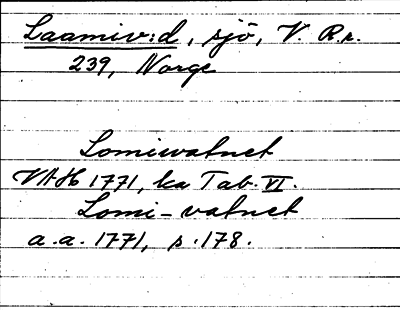 Laamiv:d, sjö, V. R.r.
239, Norge
Lomiwatnet
VAH 1771, ka Tab. VI.
Lomi-vatnet
a.a. 1771, s. 178.